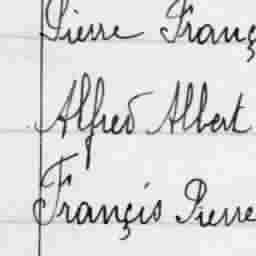 Pierre Franç
Alfred Albert
Françis Pierre